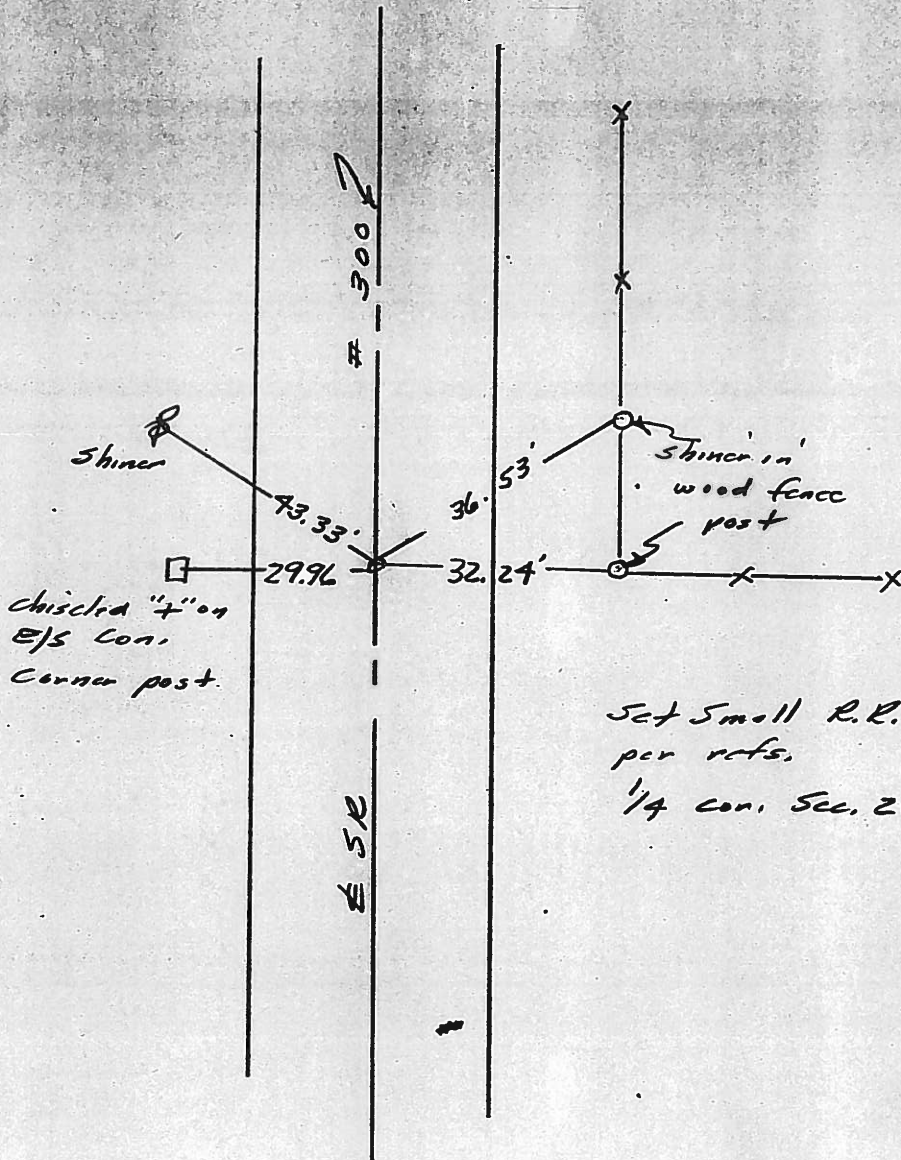 # 300
Shiner
43.33'
36.53'
Shiner in
wood fence
post
29.96
32.24'
chiseled "+" on
E/S Con.
Corner post.
Set Small R.R.
per refs.
1/4 Cor. Sec. 2
℄ SR